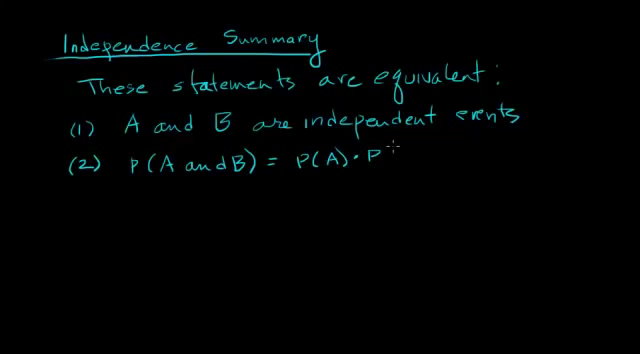 Independence Summary
These statements are equivalent:
(1) A and B are independent events
(2) P(A and B) = P(A) · P